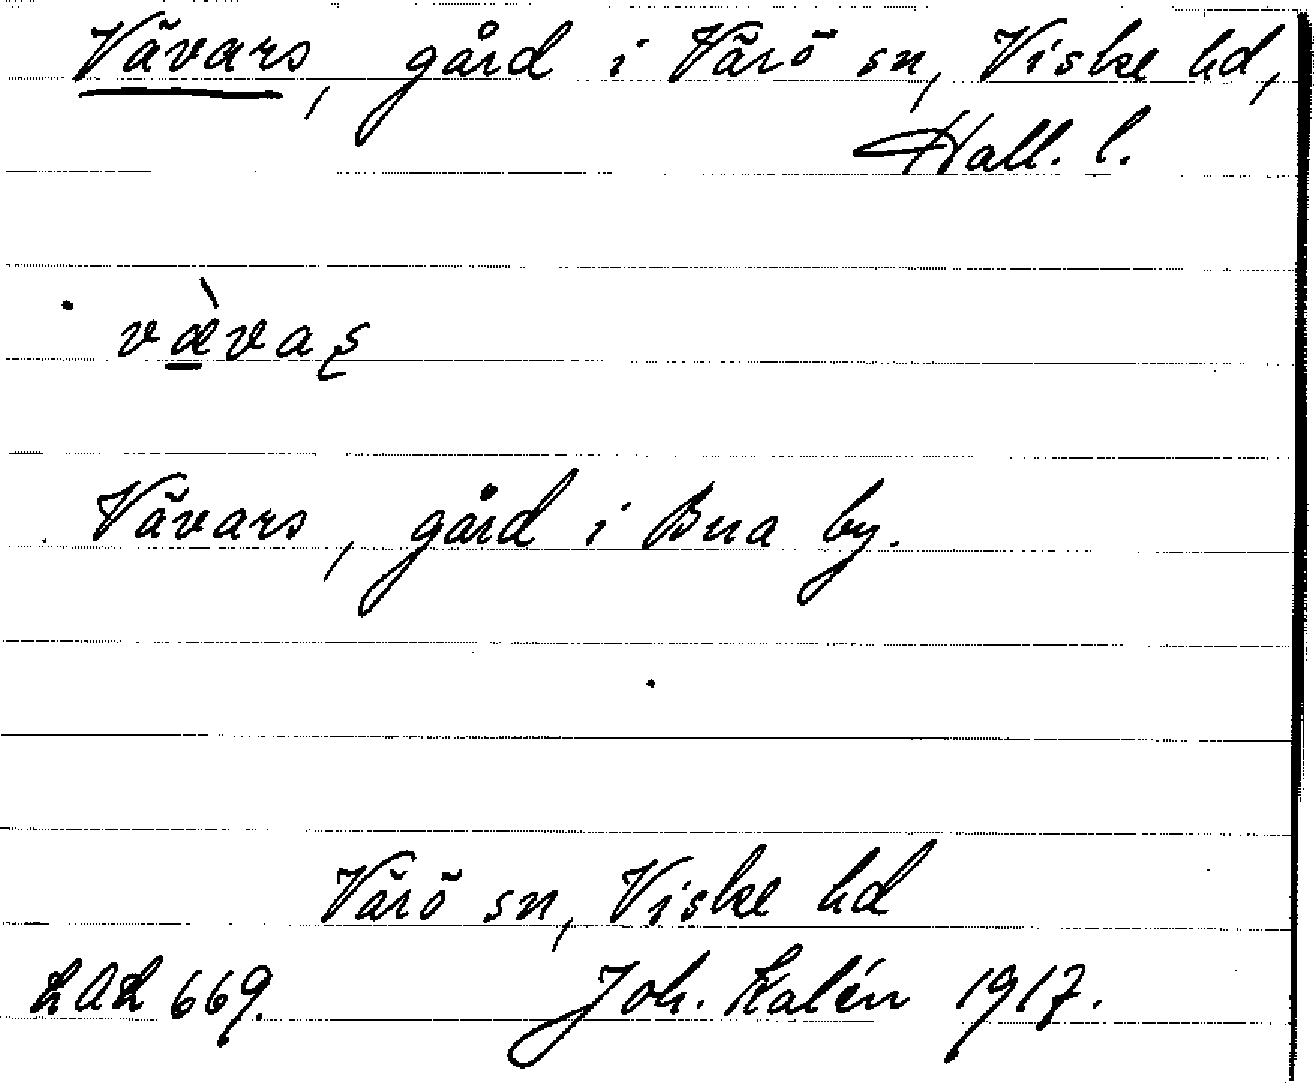 Vävars, gård i Värö sn, Viske hd,
Hall. l.
væ̀vaş
Vävars, gård i Bua by.
Värö sn, Viske hd
LAL 669. Joh. Kalén 1917.